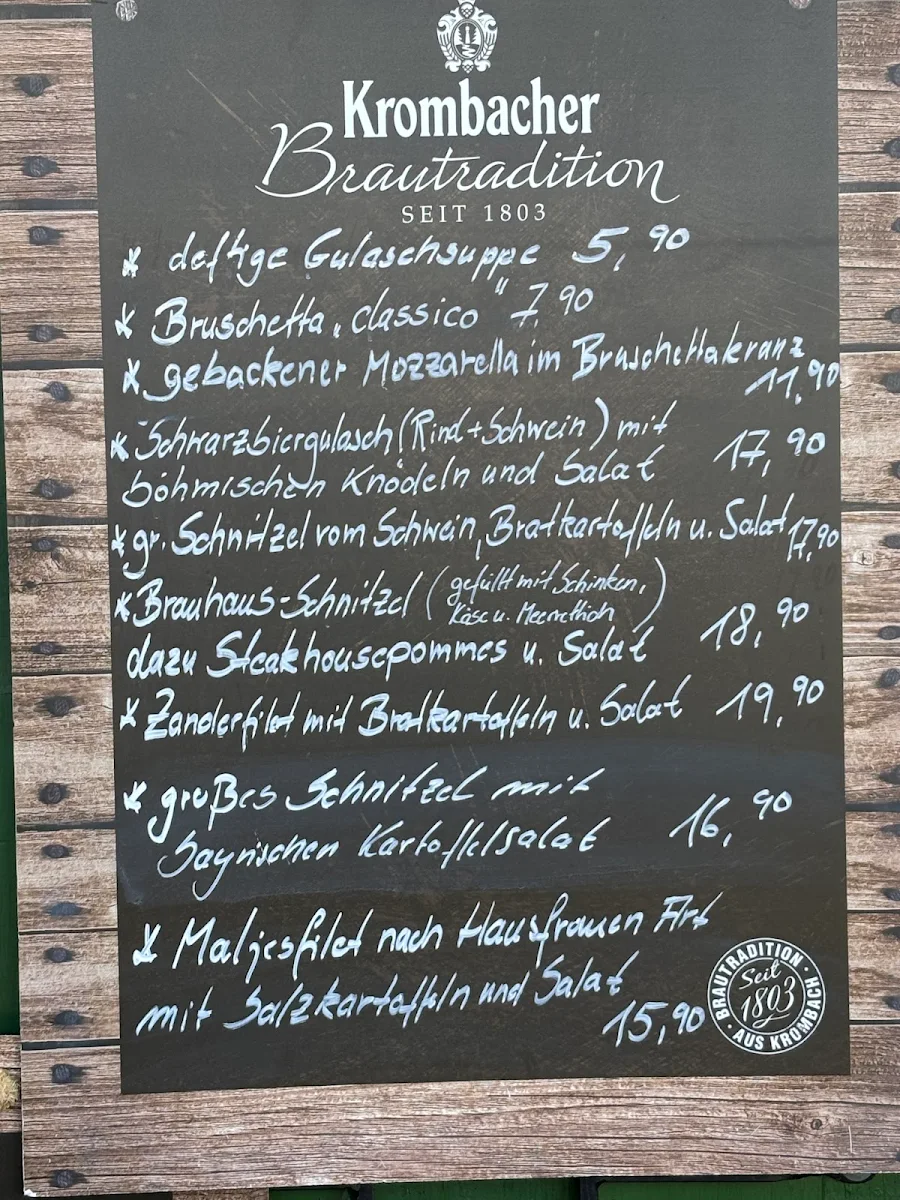 Krombacher
Brautradition
SEIT 1803
* deftige Gulaschsuppe 5,90
* Bruschetta „classico" 7,90
* gebackener Mozzarella im Bruschettakranz
11,90
* Schwarzbiergulasch (Rind + Schwein) mit
böhmischen Knödeln und Salat 17,90
* gr. Schnitzel vom Schwein, Bratkartoffeln u. Salat 17,90
* Brauhaus-Schnitzel (gefüllt mit Schinken,
Käse u. Meerrettich)
dazu Steakhousepommes u. Salat 18,90
* Zanderfilet mit Bratkartoffeln u. Salat 19,90
* großes Schnitzel mit
bayrischen Kartoffelsalat 16,90
* Matjesfilet nach Hausfrauen Art
mit Salzkartoffeln und Salat
15,90
BRAUTRADITION · AUS KROMBACH ·
Seit
1803